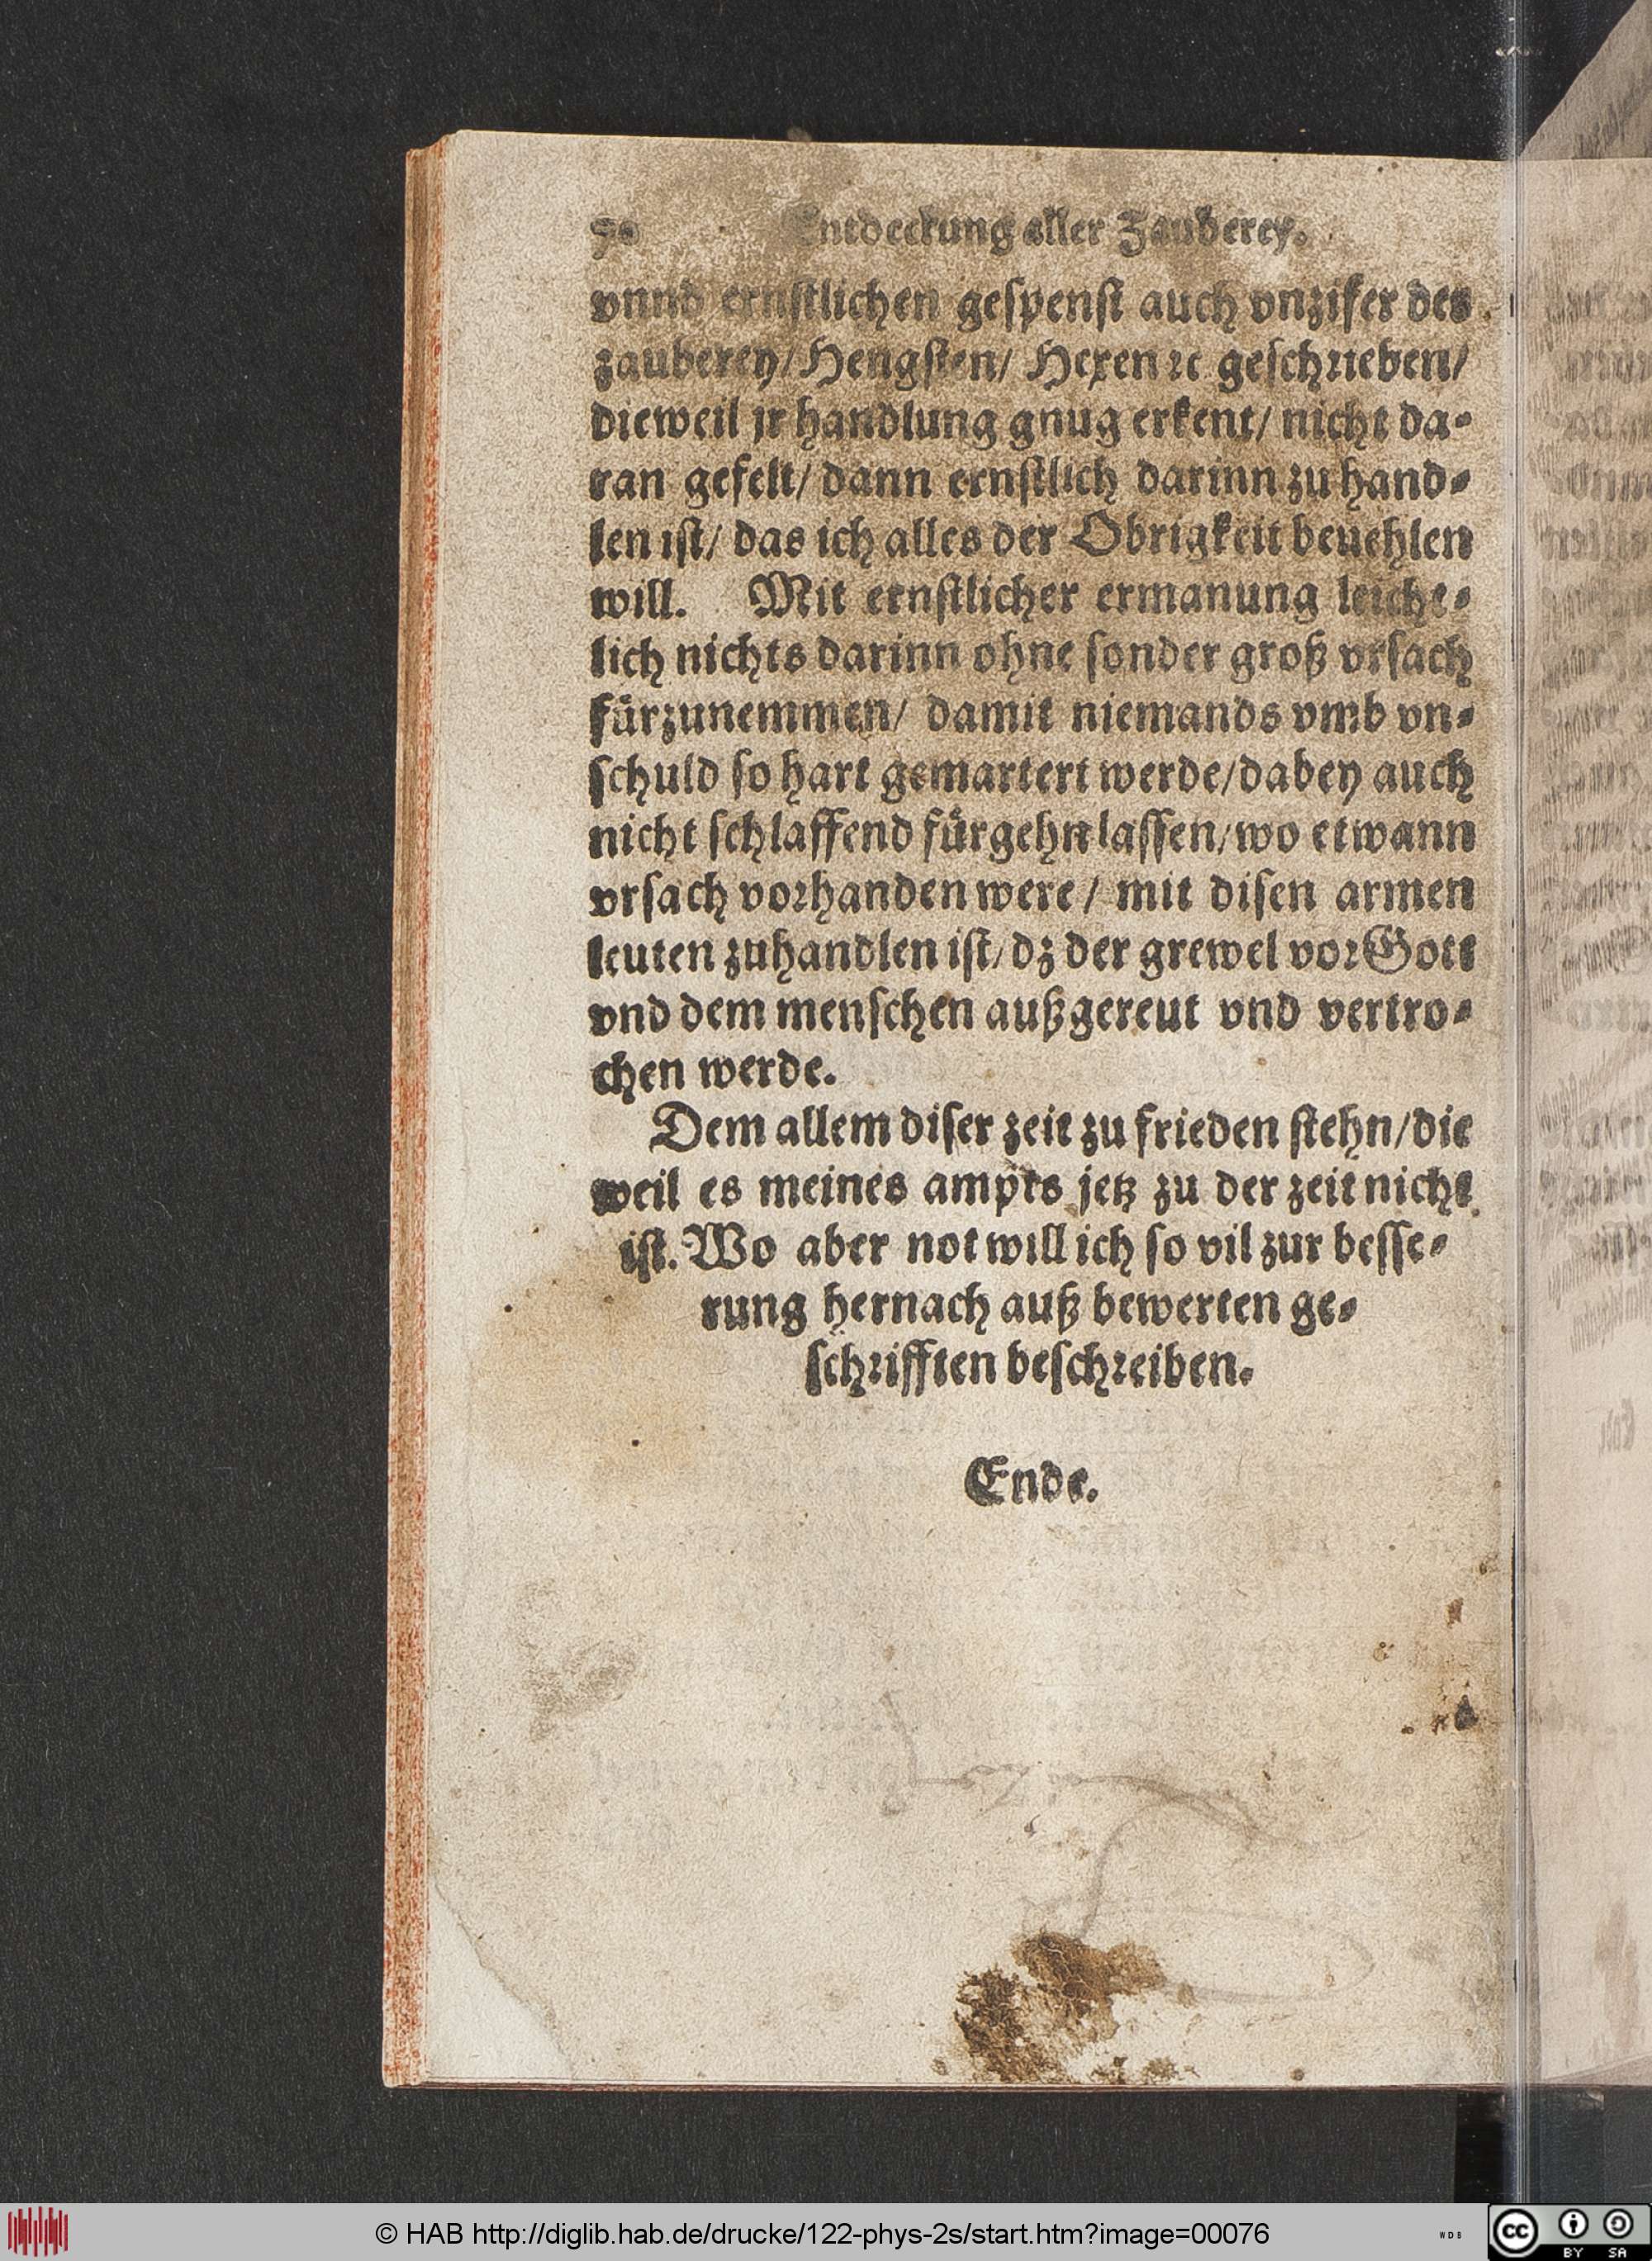 70 Entdeckung aller Zauberey.
vnnd ernstlichen gespenst auch vnzifer des
zauberey/ Hengsten/ Hexen ꝛc geschrieben/
dieweil jr handlung gnug erkent/ nicht da⸗
ran gefelt/ dann ernstlich darinn zu hand⸗
len ist/ das ich alles der Obrigkeit beuehlen
will. Mit ernstlicher ermanung leicht⸗
lich nichts darinn ohne sonder groß vrsach
fürzunemmen/ damit niemands vmb vn⸗
schuld so hart gemartert werde/ dabey auch
nicht schlaffend fürgehn lassen/ wo etwann
vrsach vorhanden were/ mit disen armen
leuten zuhandlen ist/ dz der grewel vor Gott
vnd dem menschen außgereut vnd vertro⸗
chen werde.
Dem allem diser zeit zu frieden stehn/ die
weil es meines ampts jetz zu der zeit nicht
ist. Wo aber not will ich so vil zur besse⸗
rung hernach auß bewerten ge⸗
schrifften beschreiben.
Ende.
© HAB http://diglib.hab.de/drucke/122-phys-2s/start.htm?image=00076
WDB
cc BY SA